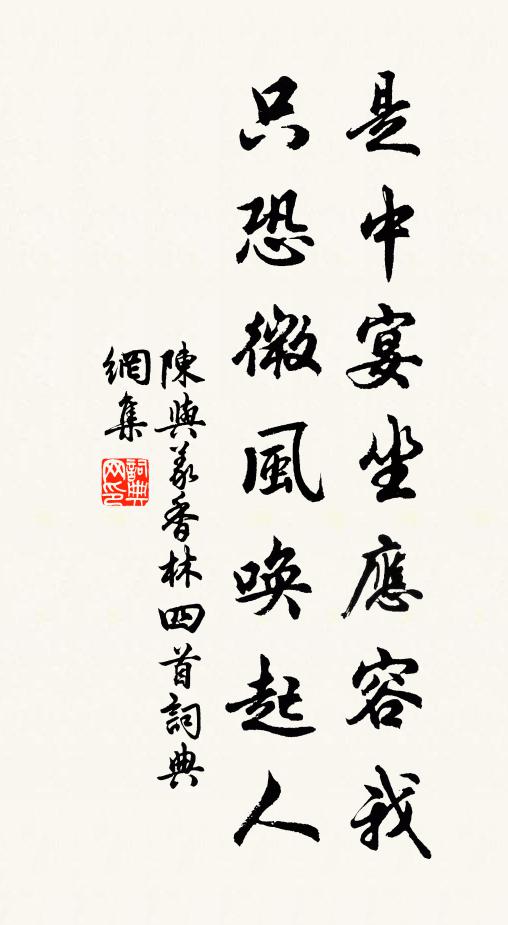 是中宴坐應容我
只恐微風喚起人
陳與義香林四首詞典
網集
詞典網印